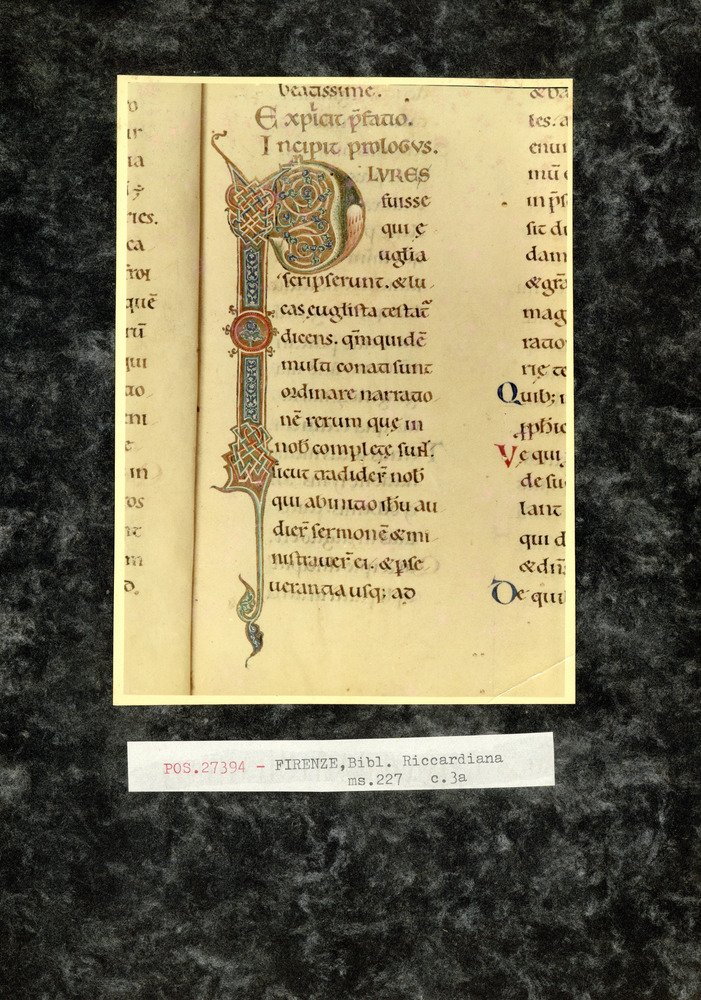 beatissime.
Explicit p̄fatio.
Incipit prologvs.
PLVRES
fuisse
qui e
uglia
scripserunt. & lu
cas euglista testat̄
dicens. qm̄ quidē
multi conati sunt
ordinare narratio
nē rerum que in
nob̄ complete sun̄.
sicut tradider̄ nob̄
qui ab initio ihu au
dier̄ sermonē & mi
nistrauer̄ ei. & pse
uerantia usq; ad
ries.
ca
quē
qui
in
les. a
enui
mū
in ps
sit di
dam
& gr̄a
mag
ratio
rie te
Quib; i
Ve qui
de su
lant
qui d
& din̄
De qui
POS.27394 - FIRENZE,Bibl. Riccardiana
ms.227 c.3a